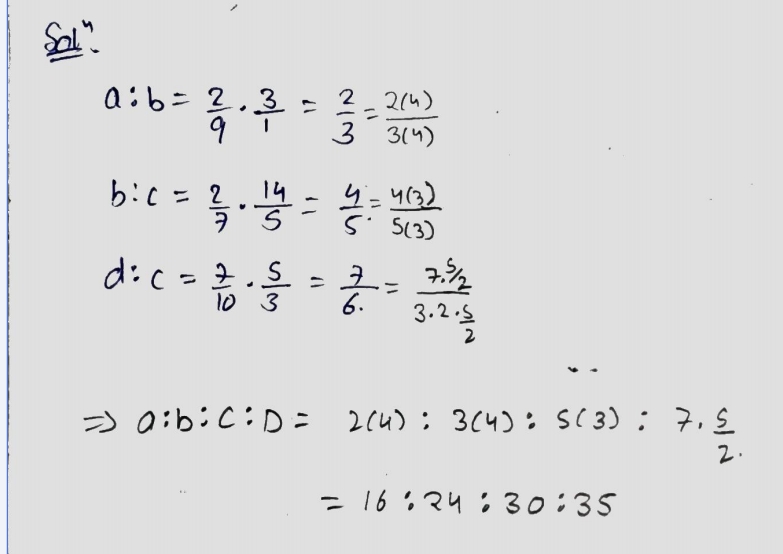 Solⁿ.
a:b = 2/9 · 3/1 = 2/3 = 2(4)/3(4)
b:c = 2/7 · 14/5 = 4/5. = 4(3)/5(3)
d:c = 7/10 · 5/3 = 7/6. = 7.5/2 / 3.2.5/2
=> a:b:c:D = 2(4) : 3(4) : 5(3) : 7.5/2.
= 16 : 24 : 30 : 35